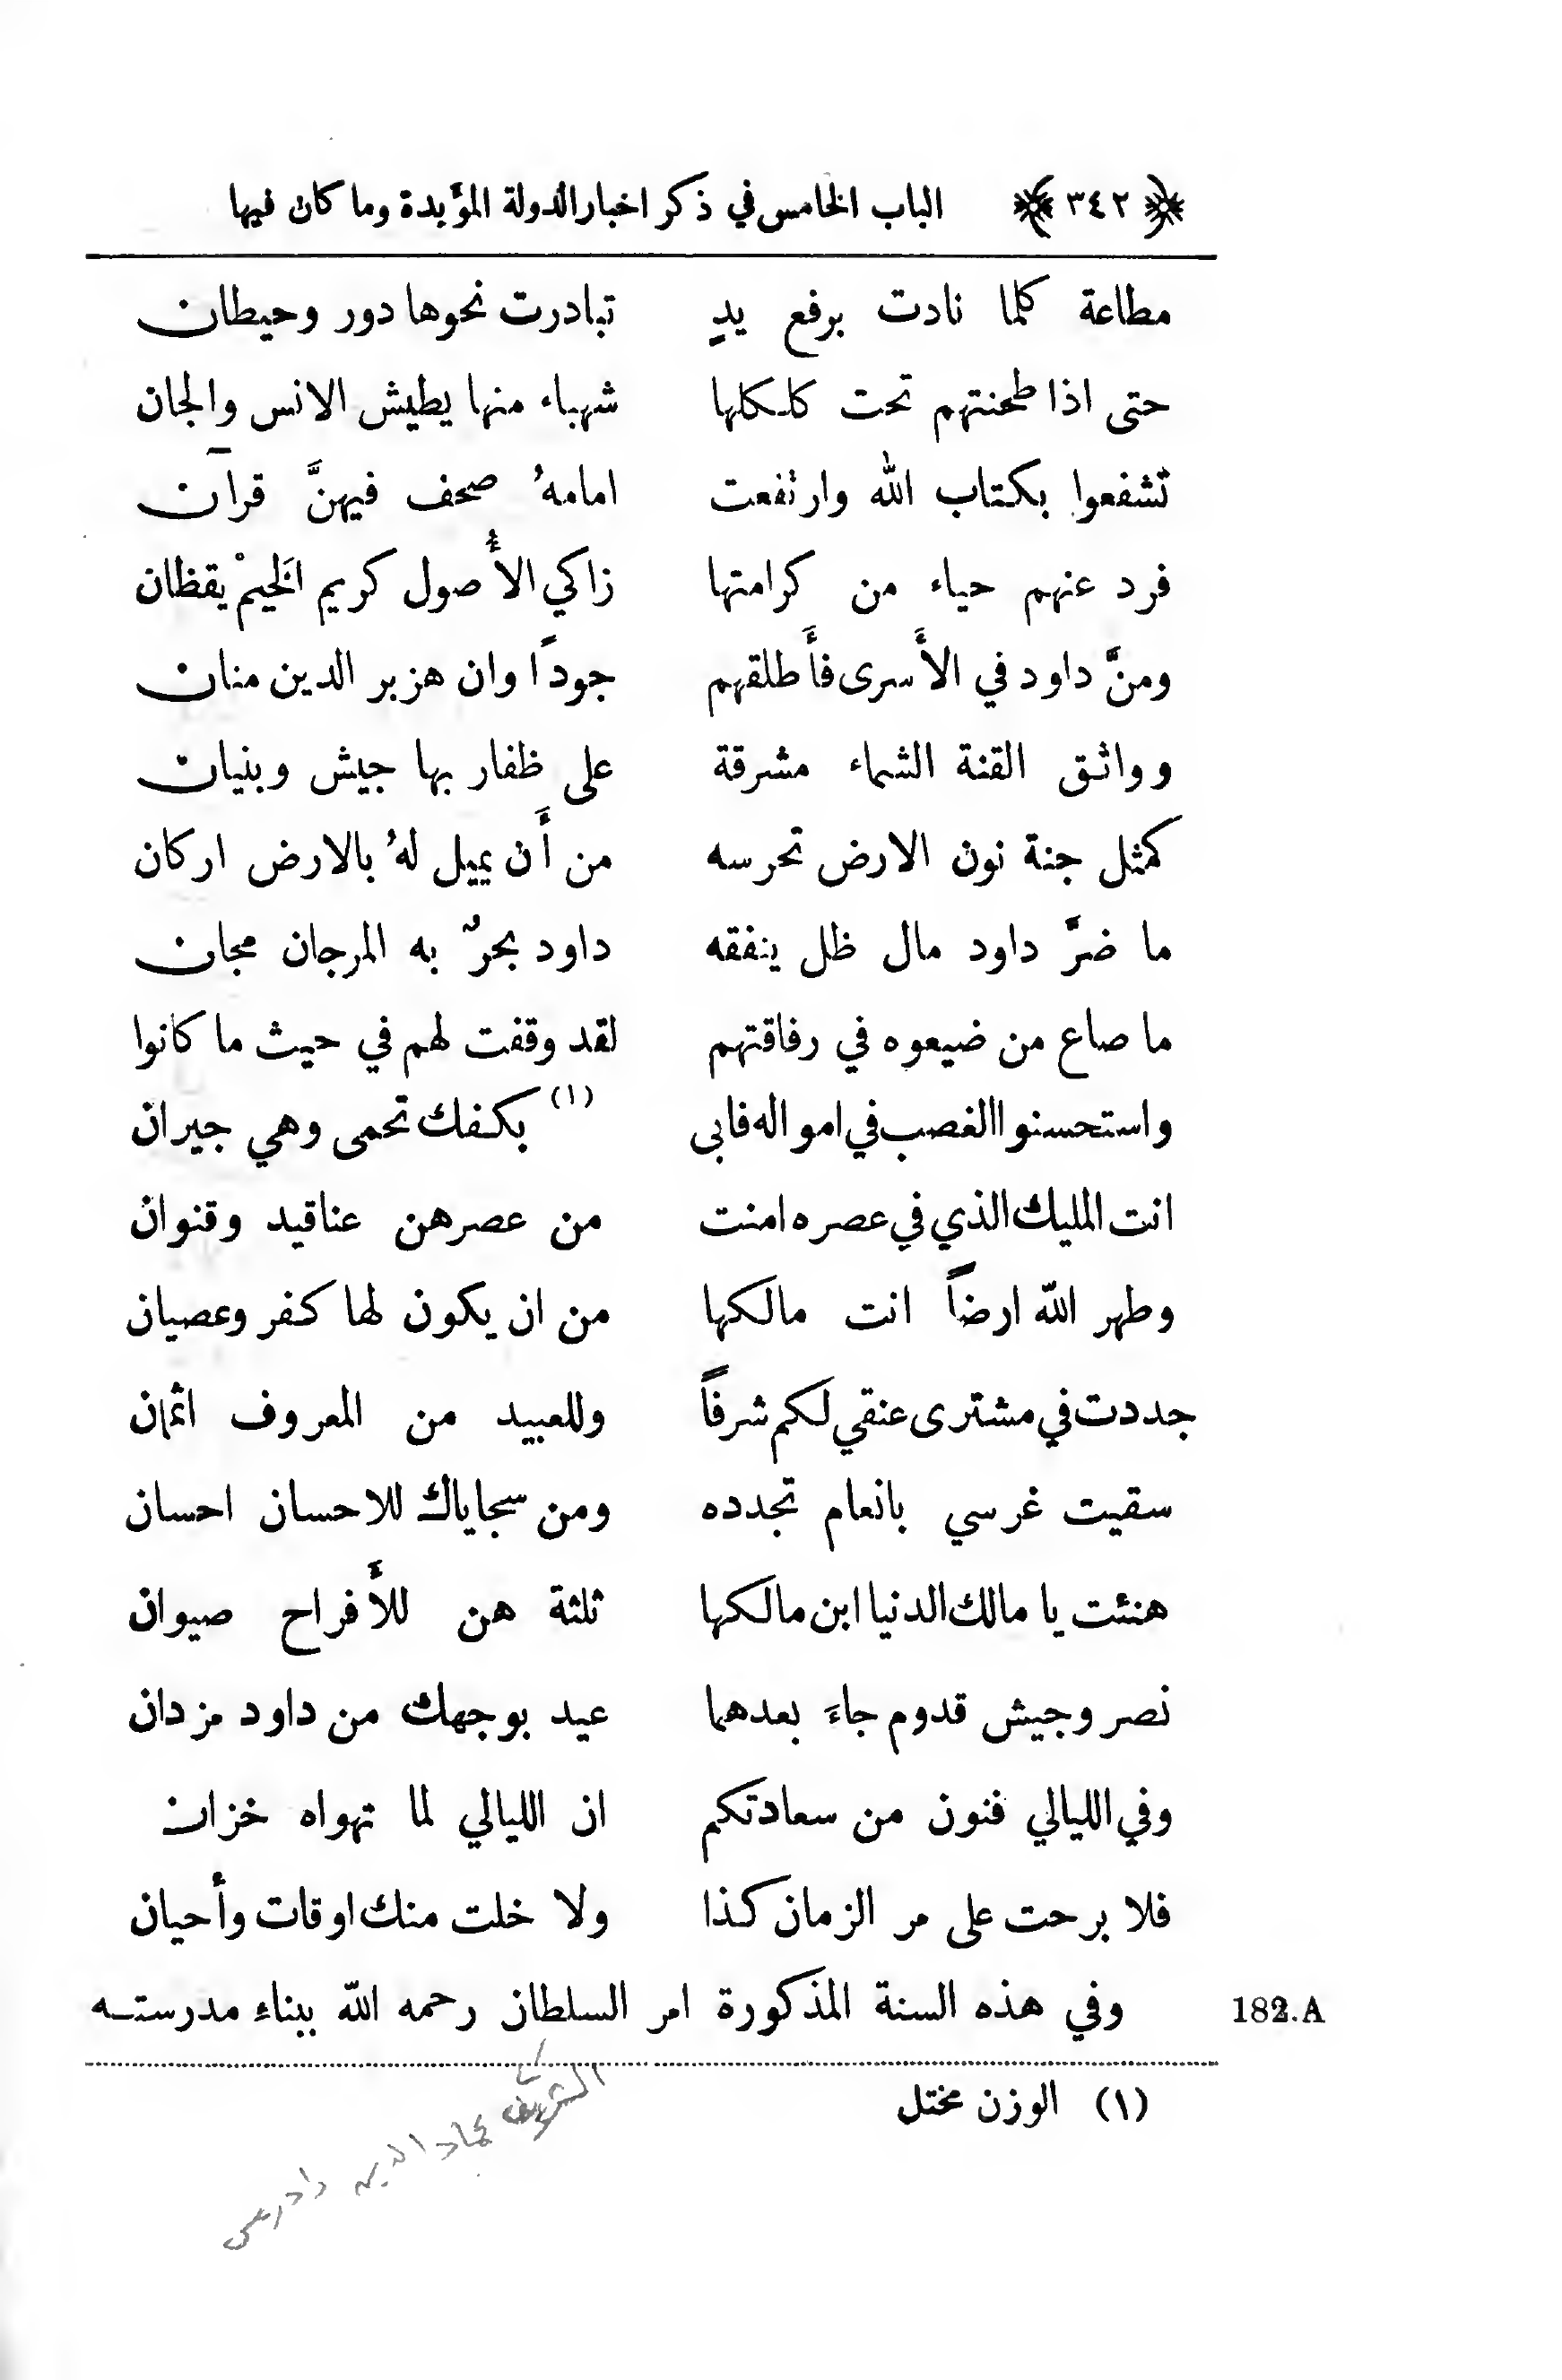 ﴿ ٣٤٢ ﴾ الباب الخامس في ذكر اخبار الدولة المؤَيدة وما كان فيها
مطاعة كلما نادت برفع يدٍ تبادرت نحوها دور وحيطان
حتى اذا طحنتهم تحت كلكلها شهباء منها يطيش الانس والجان
تشفعوا بكتاب الله وارتفعت امامهُ صحف فيهنَّ قرآن
فرد عنهم حياء من كرامتها زاكي الأُصول كريم الَخيمْ يقظان
ومنَّ داود في الأَسرى فأَطلقهم جودًا وان هزبر الدين منان
وواثق القنة الشماء مشرقة على ظفار بها جيش وبنيان
كمثل جنة نون الارض تحرسه من أَن يميل لهُ بالارض اركان
ما ضرَّ داود مال ظل ينفقه داود بحرٌ به المرجان مجان
ما صاع من ضيعوه في رفاقتهم لقد وقفت لهم في حيث ما كانوا
واستحسنوا الغصب في امواله فابى (١) بكفك تحمى وهي جيران
انت المليك الذي في عصره امنت من عصرهن عناقيد وقنوان
وطهر الله ارضاً انت مالكها من ان يكون لها كفر وعصيان
جددت في مشترى عنقي لكم شرفاً وللعبيد من المعروف اثمان
سقيت غرسي بانعام تجدده ومن سجاياك للاحسان احسان
هنئت يا مالك الدنيا ابن مالكها ثلثة هن للأَفراح صيوان
نصر وجيش قدوم جاءَ بعدهما عيد بوجهك من داود مزدان
وفي الليالي فنون من سعادتكم ان الليالي لما تهواه خزان
فلا برحت على مر الزمان كذا ولا خلت منك اوقات وأحيان
وفي هذه السنة المذكورة امر السلطان رحمه الله ببناء مدرسته 182.A
(١) الوزن مختل
الشريف عماد الدين